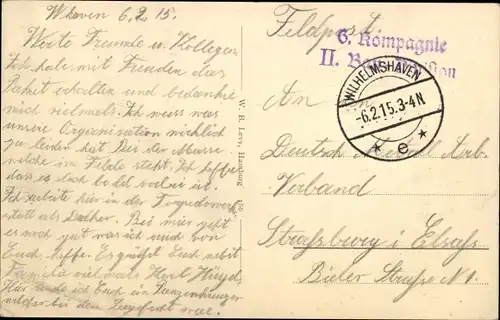 W'haven 6.2.15.
Werte Freunde u. Kollegen
Ich habe mit Freuden das
Paket erhalten und bedanke
mich vielmals. Ich weis was
unsere Organisation wirklich
zu leiden hat. Bei der Masse
welche im Felde steht. Ich hoffe
das es bald vorbei ist.
Ich arbeite hier in der Torpedowerft
statt als Bei mir geht
es noch gut was ich auch von
Euch hoffe. Es grüßt Euch nebst
Familie vielmals Karl
Hier sende ich Euch ein Panzerkreuzer
welcher bei den war.
W. B. Levy, Hamburg
Feldpost
6. Kompagnie
II.
WILHELMSHAVEN
-6.2.15.3-4N
* e *
An den
Deutsch Arb.
Verband
Straßburg i Elsaß
Straße N